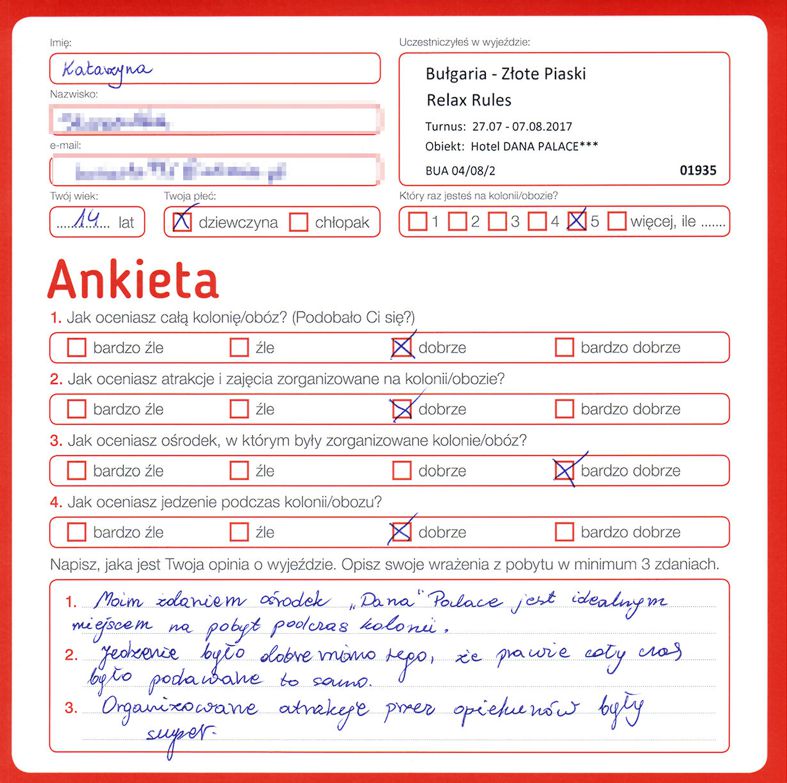 Imię:
Katarzyna
Nazwisko:
e-mail:
Twój wiek:
14 lat
Twoja płeć:
dziewczyna chłopak
Uczestniczyłeś w wyjeździe:
Bułgaria - Złote Piaski
Relax Rules
Turnus: 27.07 - 07.08.2017
Obiekt: Hotel DANA PALACE***
BUA 04/08/2 01935
Który raz jesteś na kolonii/obozie?
1 2 3 4 5 więcej, ile .......
Ankieta
1. Jak oceniasz całą kolonię/obóz? (Podobało Ci się?)
bardzo źle źle dobrze bardzo dobrze
2. Jak oceniasz atrakcje i zajęcia zorganizowane na kolonii/obozie?
bardzo źle źle dobrze bardzo dobrze
3. Jak oceniasz ośrodek, w którym były zorganizowane kolonie/obóz?
bardzo źle źle dobrze bardzo dobrze
4. Jak oceniasz jedzenie podczas kolonii/obozu?
bardzo źle źle dobrze bardzo dobrze
Napisz, jaka jest Twoja opinia o wyjeździe. Opisz swoje wrażenia z pobytu w minimum 3 zdaniach.
1. Moim zdaniem ośrodek „Dana" Palace jest idealnym
miejscem na pobyt podczas kolonii.
2. Jedzenie było dobre mimo tego, że prawie cały czas
było podawane to samo.
3. Organizowane atrakcje przez opiekunów były
super.